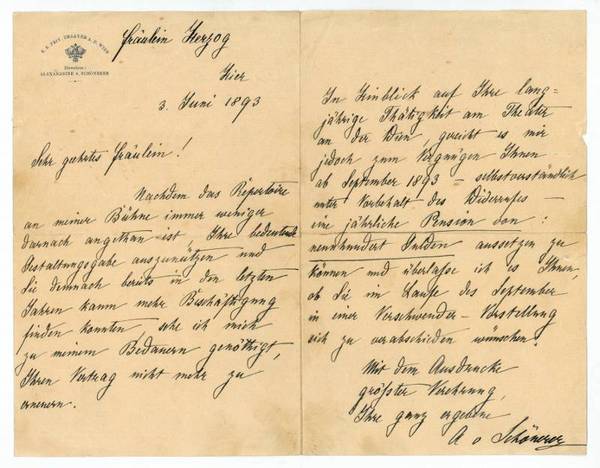 K. K. PRIV. THEATER A. D. WIEN
Direction:
ALEXANDRINE v. SCHÖNERER
Fräulein Herzog
Hier
3. Juni 1893
Sehr geehrtes Fräulein!
Nachdem das Repertoire
an meiner Bühne immer weniger
darnach angethan ist Ihre bedeutende
Gestaltungsgabe auszunützen und
Sie demnach bereits in den letzten
Jahren kaum mehr Beschäftigung
finden konnten, sehe ich mich
zu meinem Bedauern genöthigt,
Ihren Vertrag nicht mehr zu
erneuern.
In Hinblick auf Ihre lang=
jährige Thätigkeit am Theater
an der Wien, gereicht es mir
jedoch zum Vergnügen Ihnen
ab September 1893 – selbstverständlich
unter Vorbehalt des Widerrufes –
eine jährliche Pension von:
neunhundert Gulden aussetzen zu
können und überlasse ich es Ihnen,
ob Sie im Laufe des September
in einer Verschwender-Vorstellung
sich zu verabschieden wünschen.
Mit dem Ausdrucke
größter Verehrung,
Ihre ganz ergebene
A v Schönerer